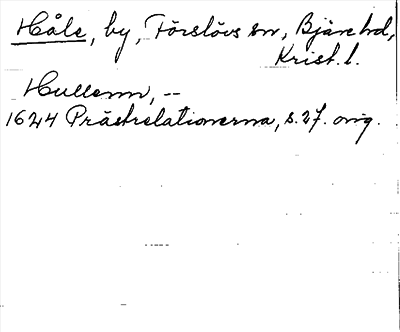 Håle, by, Förslövs sn, Bjäre hd,
Krist. l.
Hullenn, --
1624 Prästrelationerna, s. 27. orig.